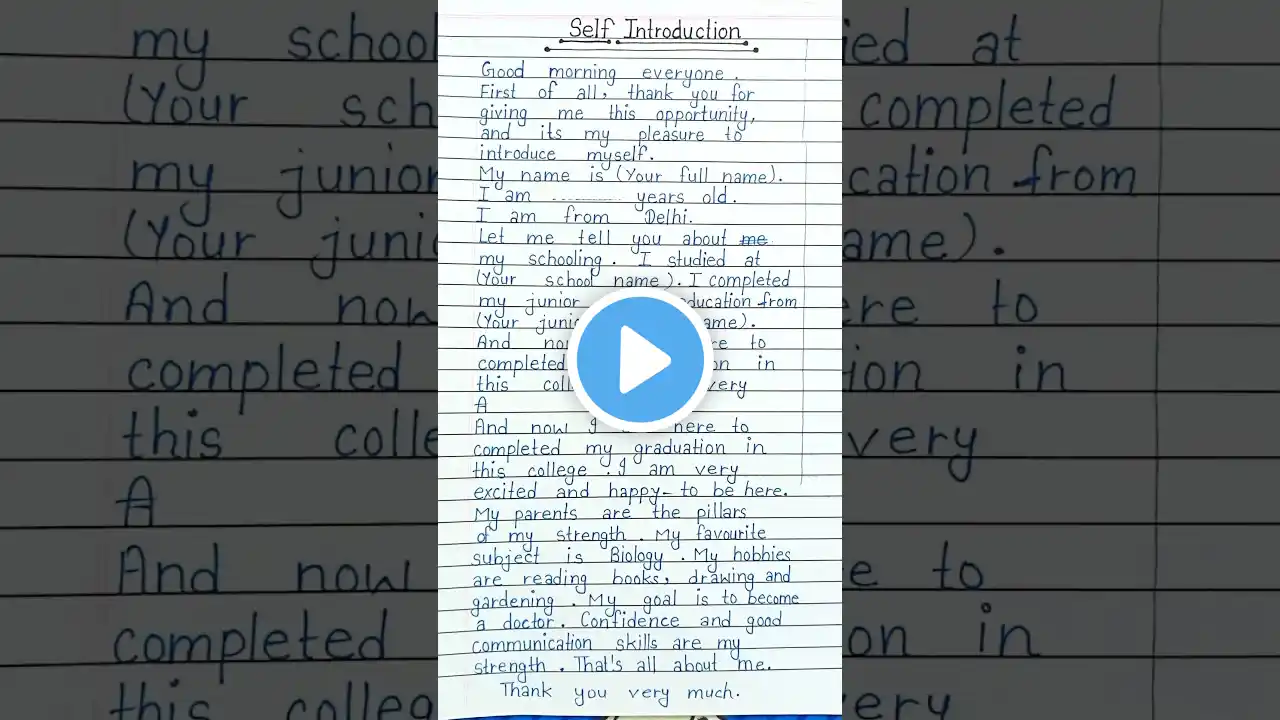 Self Introduction
Good morning everyone.
First of all, thank you for
giving me this opportunity,
and its my pleasure to
introduce myself.
My name is (Your full name).
I am ---------- years old.
I am from Delhi.
Let me tell you about me
my schooling. I studied at
(Your school name). I completed
my junior ducation from
(Your juni ame).
And no re to
completed on in
this coll very
A
And now I here to
completed my graduation in
this college. I am very
excited and happy to be here.
My parents are the pillars
of my strength. My favourite
subject is Biology. My hobbies
are reading books, drawing and
gardening. My goal is to become
a doctor. Confidence and good
communication skills are my
strength. That's all about me.
Thank you very much.